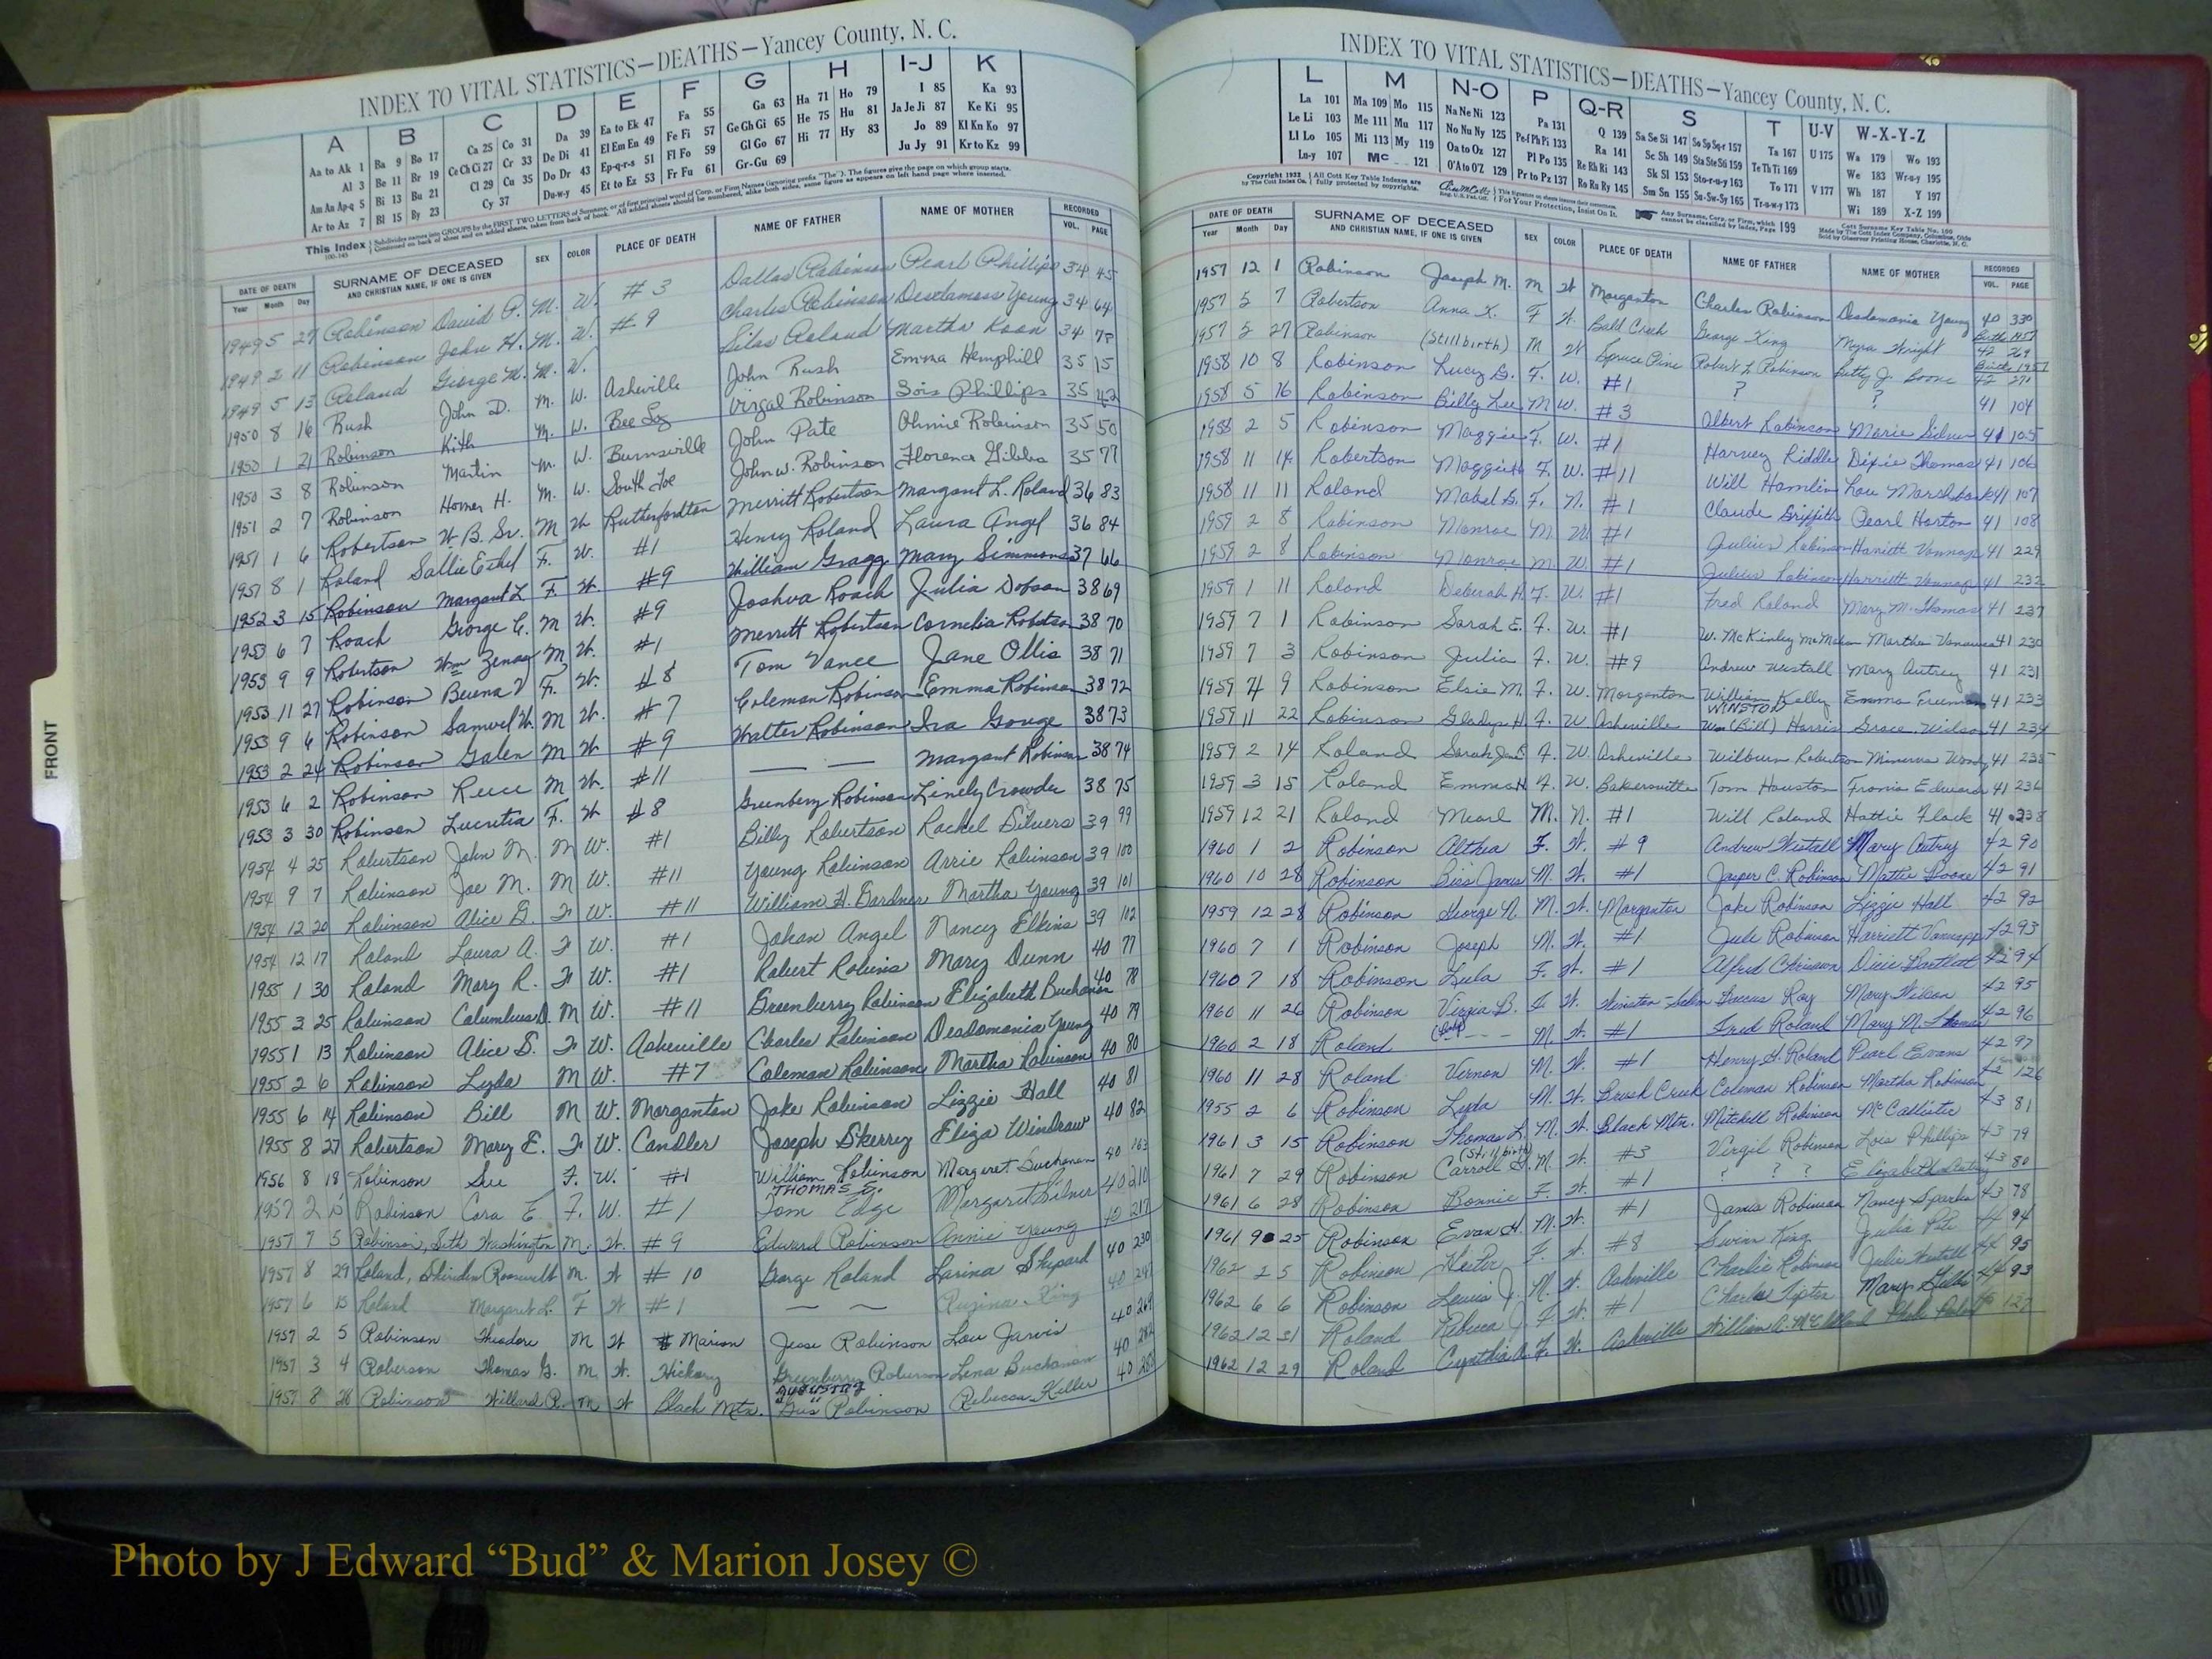 INDEX TO VITAL STATISTICS—DEATHS—Yancey County, N. C.
A B C D E F G H I-J K
Aa to Ak 1 Ba 9 Bo 17 Ca 25 Co 31 Da 39 Ea to Ek 47 Fa 55 Ga 63 Ha 71 Ho 79 I 85 Ka 93
Al 3 Be 11 Br 19 Ce Ch Ci 27 Cr 33 De Di 41 El Em En 49 Fe Fi 57 Ge Gh Gi 65 He 75 Hu 81 Ja Je Ji 87 Ke Ki 95
Am An Ap-q 5 Bi 13 Bu 21 Cl 29 Cu 35 Do Dr 43 Ep-q-r-s 51 Fl Fo 59 Gl Go 67 Hi 77 Hy 83 Jo 89 Kl Kn Ko 97
Ar to Az 7 Bl 15 By 23 Cy 37 Du-w-y 45 Et to Ez 53 Fr Fu 61 Gr-Gu 69 Ju Jy 91 Kr to Kz 99
This Index
DATE OF DEATH SURNAME OF DECEASED AND CHRISTIAN NAME, IF ONE IS GIVEN SEX COLOR PLACE OF DEATH NAME OF FATHER NAME OF MOTHER RECORDED
Year Month Day VOL. PAGE
1949 5 27 Robinson David P. M. W. #3 Dallas Robinson Pearl Phillips 34 45
1949 2 11 Robinson John H. M. W. #9 Charles Robinson Desdamona Young 34 64
1949 5 13 Roland George M. M. W. Silas Roland Martha Koon 34 78
1950 8 16 Rush John D. M. W. Asheville John Rush Emma Hemphill 35 15
1950 1 21 Robinson Kith M. W. Bee Log Virgal Robinson Lois Phillips 35 42
1950 3 8 Robinson Martin M. W. Burnsville John Pate Ohmie Robinson 35 50
1951 2 7 Robinson Homer H. M. W. South Toe John W. Robinson Florence Gibbs 35 77
1951 1 6 Robertson W. B. Sr. M W. Rutherfordton Merritt Robertson Margaret L. Roland 36 83
1951 8 1 Roland Sallie Ethel F. W. #1 Henry Roland Laura Angel 36 84
1952 3 15 Robinson Margaret L F. W. #9 William Gragg Mary Simmons 37 66
1953 6 7 Roach George C. M W. #9 Joshua Roach Julia Dobson 38 69
1953 9 9 Robertson Wm Zenas M W. #1 Merritt Robertson Cornelia Robertson 38 70
1953 11 27 Robinson Buena V F. W. #8 Tom Vance Jane Ollis 38 71
1953 9 6 Robinson Samuel W. M W. #7 Coleman Robinson Emma Robinson 38 72
1953 2 24 Robinson Galen M W #9 Walter Robinson Ira Gouge 38 73
1953 6 2 Robinson Reece M W. #11 — — Margaret Robinson 38 74
1953 3 30 Robinson Lucretia F. W #8 Greenberry Robinson Linely Crowder 38 75
1954 4 25 Robertson John M. M W. #1 Billy Robertson Rachel Silvers 39 99
1954 9 7 Robinson Joe M. M W. #11 Young Robinson Arrie Robinson 39 100
1954 12 20 Robinson Alice G. F W. #11 William H. Gardner Martha Young 39 101
1954 12 17 Roland Laura A. F W. #1 Johan Angel Nancy Elkins 39 112
1955 1 30 Roland Mary R. F W. #1 Robert Robins Mary Dunn 40 77
1955 3 25 Robinson Columbus D. M W. #11 Greenberry Robinson Elizabeth Buchanan 40 78
1955 1 13 Robinson Alice S. F W. Asheville Charles Robinson Desdomonia Young 40 79
1955 2 6 Robinson Lyda M W. #7 Coleman Robinson Martha Robinson 40 80
1955 6 14 Robinson Bill M W. Morganton Jake Robinson Lizzie Hall 40 81
1955 8 27 Robertson Mary E. F W. Candler Joseph Skerry Eliza Windraw 40 82
1956 8 18 Robinson Sue F. W. #1 William Robinson Margaret Buchanan 40 163
THOMAS E.
1957 2 Robinson Cora E F. W. #1 Tom Edge Margaret Silver 40 210
1957 7 5 Robinson, Seth Washington M. W. #9 Edward Robinson Annie Young 40 217
1957 8 29 Roland, Shiriden Roosevelt M. W #10 George Roland Larina Shepard 40 230
1957 6 15 Roland Margaret L. F W #1 — — King 40
1957 2 5 Robinson Theodore M W Marion Jesse Robinson Lou Jarvis 40 269
1957 3 4 Roberson Thomas G. M. W. Hickory Greenberry Roberson Lena Buchanan 40 282
AUGUSTUS
1957 8 28 Robinson Willard R. M W Black Mtn. "Gus" Robinson Rebecca Keller 40
FRONT
INDEX TO VITAL STATISTICS—DEATHS—Yancey County, N. C.
L M N-O P Q-R S T U-V W-X-Y-Z
La 101 Ma 109 Mo 115 Na Ne Ni 123 Pa 131 Q 139 Sa Se Si 147 So Sp Sq-r 157 Ta 167 U 175 Wa 179 Wo 193
Le Li 103 Me 111 Mu 117 No Nu Ny 125 Pe-f Ph Pi 133 Ra 141 Sc Sh 149 Sta Ste Sti 159 Te Th Ti 169 We 183 Wr-u-y 195
Ll Lo 105 Mi 113 My 119 Oa to Oz 127 Pl Po 135 Re Rh Ri 143 Sk Sl 153 Sto-r-u-y 163 To 171 V 177 Wh 187 Y 197
Lu-y 107 Mc 121 O'A to O'Z 129 Pr to Pz 137 Ro Ru Ry 145 Sm Sn 155 Su-Sw-Sy 165 Tr-u-w-y 173 Wi 189 X-Z 199
DATE OF DEATH SURNAME OF DECEASED AND CHRISTIAN NAME, IF ONE IS GIVEN SEX COLOR PLACE OF DEATH NAME OF FATHER NAME OF MOTHER RECORDED
Year Month Day VOL. PAGE
1957 12 1 Robinson Joseph M. M W Morganton Charles Robinson Desdamonia Young 40 330
1957 5 7 Robertson Anna K. F W. Bald Creek George King Myra Wright Births 1957 42 269
1957 5 27 Robinson (Stillbirth) M W Spruce Pine Robert L Robinson Betty J. Boone Births 1957 42 271
1958 10 8 Robinson Lucy G. F. W. #1 ? ? 41 104
1958 5 16 Robinson Billy Lee M W. #3 Albert Robinson Marie Silver 41 105
1958 2 5 Robinson Maggie F. W. #1 Harvey Riddle Dixie Thomas 41 106
1958 11 14 Robertson Maggie F. W. #11 Will Hamlin Lou Marshbank 41 107
1958 11 11 Roland Mabel G. F. N. #1 Claude Griffith Pearl Horton 41 108
1959 2 8 Robinson Monroe M W. #1 Julius Robinson Hariett Vannap 41 229
1959 2 8 Robinson Monroe M W. #1 Julius Robinson Harriett Vannap 41 232
1959 1 11 Roland Deborah A. F. W. #1 Fred Roland Mary M. Thomas 41 237
1959 7 1 Robinson Sarah E. F. W. #1 W. McKinley McMahan Martha 41 230
1959 7 3 Robinson Julia F. W. #9 Andrew Westall Mary Autrey 41 231
1959 4 9 Robinson Elsie M. F. W. Morganton William Kelley Emma Freeman 41 233
WINSTON
1959 11 22 Robinson Gladys H. F. W Asheville Wm (Bill) Harris Grace Wilson 41 234
1959 2 14 Roland Sarah Jane F. W. Asheville Wilburn Robertson Minerva Woody 41 235
1959 3 15 Roland Emma H F. W. Bakersville Tom Houston Fronia Edwards 41 236
1959 12 21 Roland Mearl M. N. #1 Will Roland Hattie Flack 41 238
1960 1 2 Robinson Althea F. W. #9 Andrew Westall Mary Autrey 42 90
1960 10 28 Robinson Biss James M. W. #1 Jasper C. Robinson Mattie Boone 42 91
1959 12 28 Robinson George N. M. W. Morganton Jake Robinson Lizzie Hall 42 92
1960 7 1 Robinson Joseph M. W. #1 Jule Robinson Harriett Vannapp 42 93
1960 7 18 Robinson Lula F. W. #1 Alfred Chrisawn Dicie Bartlett 42 94
1960 11 26 Robinson Vizzia B. F W. Winston-Salem Lucus Ray Mary Wilson 42 95
1960 2 18 Roland (baby) - - M. W. #1 Fred Roland Mary M. Thomas 42 96
1960 11 28 Roland Vernon M. W. #1 Henry G. Roland Pearl Evans 42 97
1955 2 6 Robinson Lyda M. W. Brush Creek Coleman Robinson Martha Robinson 42 126
1961 3 15 Robinson Thomas L. M. W. Black Mtn. Mitchell Robinson McCallister 43 81
(Stillbirth)
1961 7 29 Robinson Carroll G. M. W. #3 Virgil Robinson Lois Phillips 43 79
1961 6 28 Robinson Bonnie F. W. #1 ? ? ? Elizabeth Autrey 43 80
1961 9 25 Robinson Evan H. M. W. #1 James Robinson Nancy Sparks 43 78
1962 2 5 Robinson Hester F. W. #8 King Julia 44 94
1962 6 6 Robinson Lewis J. M. W. Asheville Charlie Robinson Julia Westall 44 95
1962 12 31 Roland Rebecca J. F. W. #1 Charles Tipton Mary 44 93
1962 12 29 Roland Cynthia A. F. W. Asheville William A. McClelland 127
Photo by J Edward “Bud” & Marion Josey ©